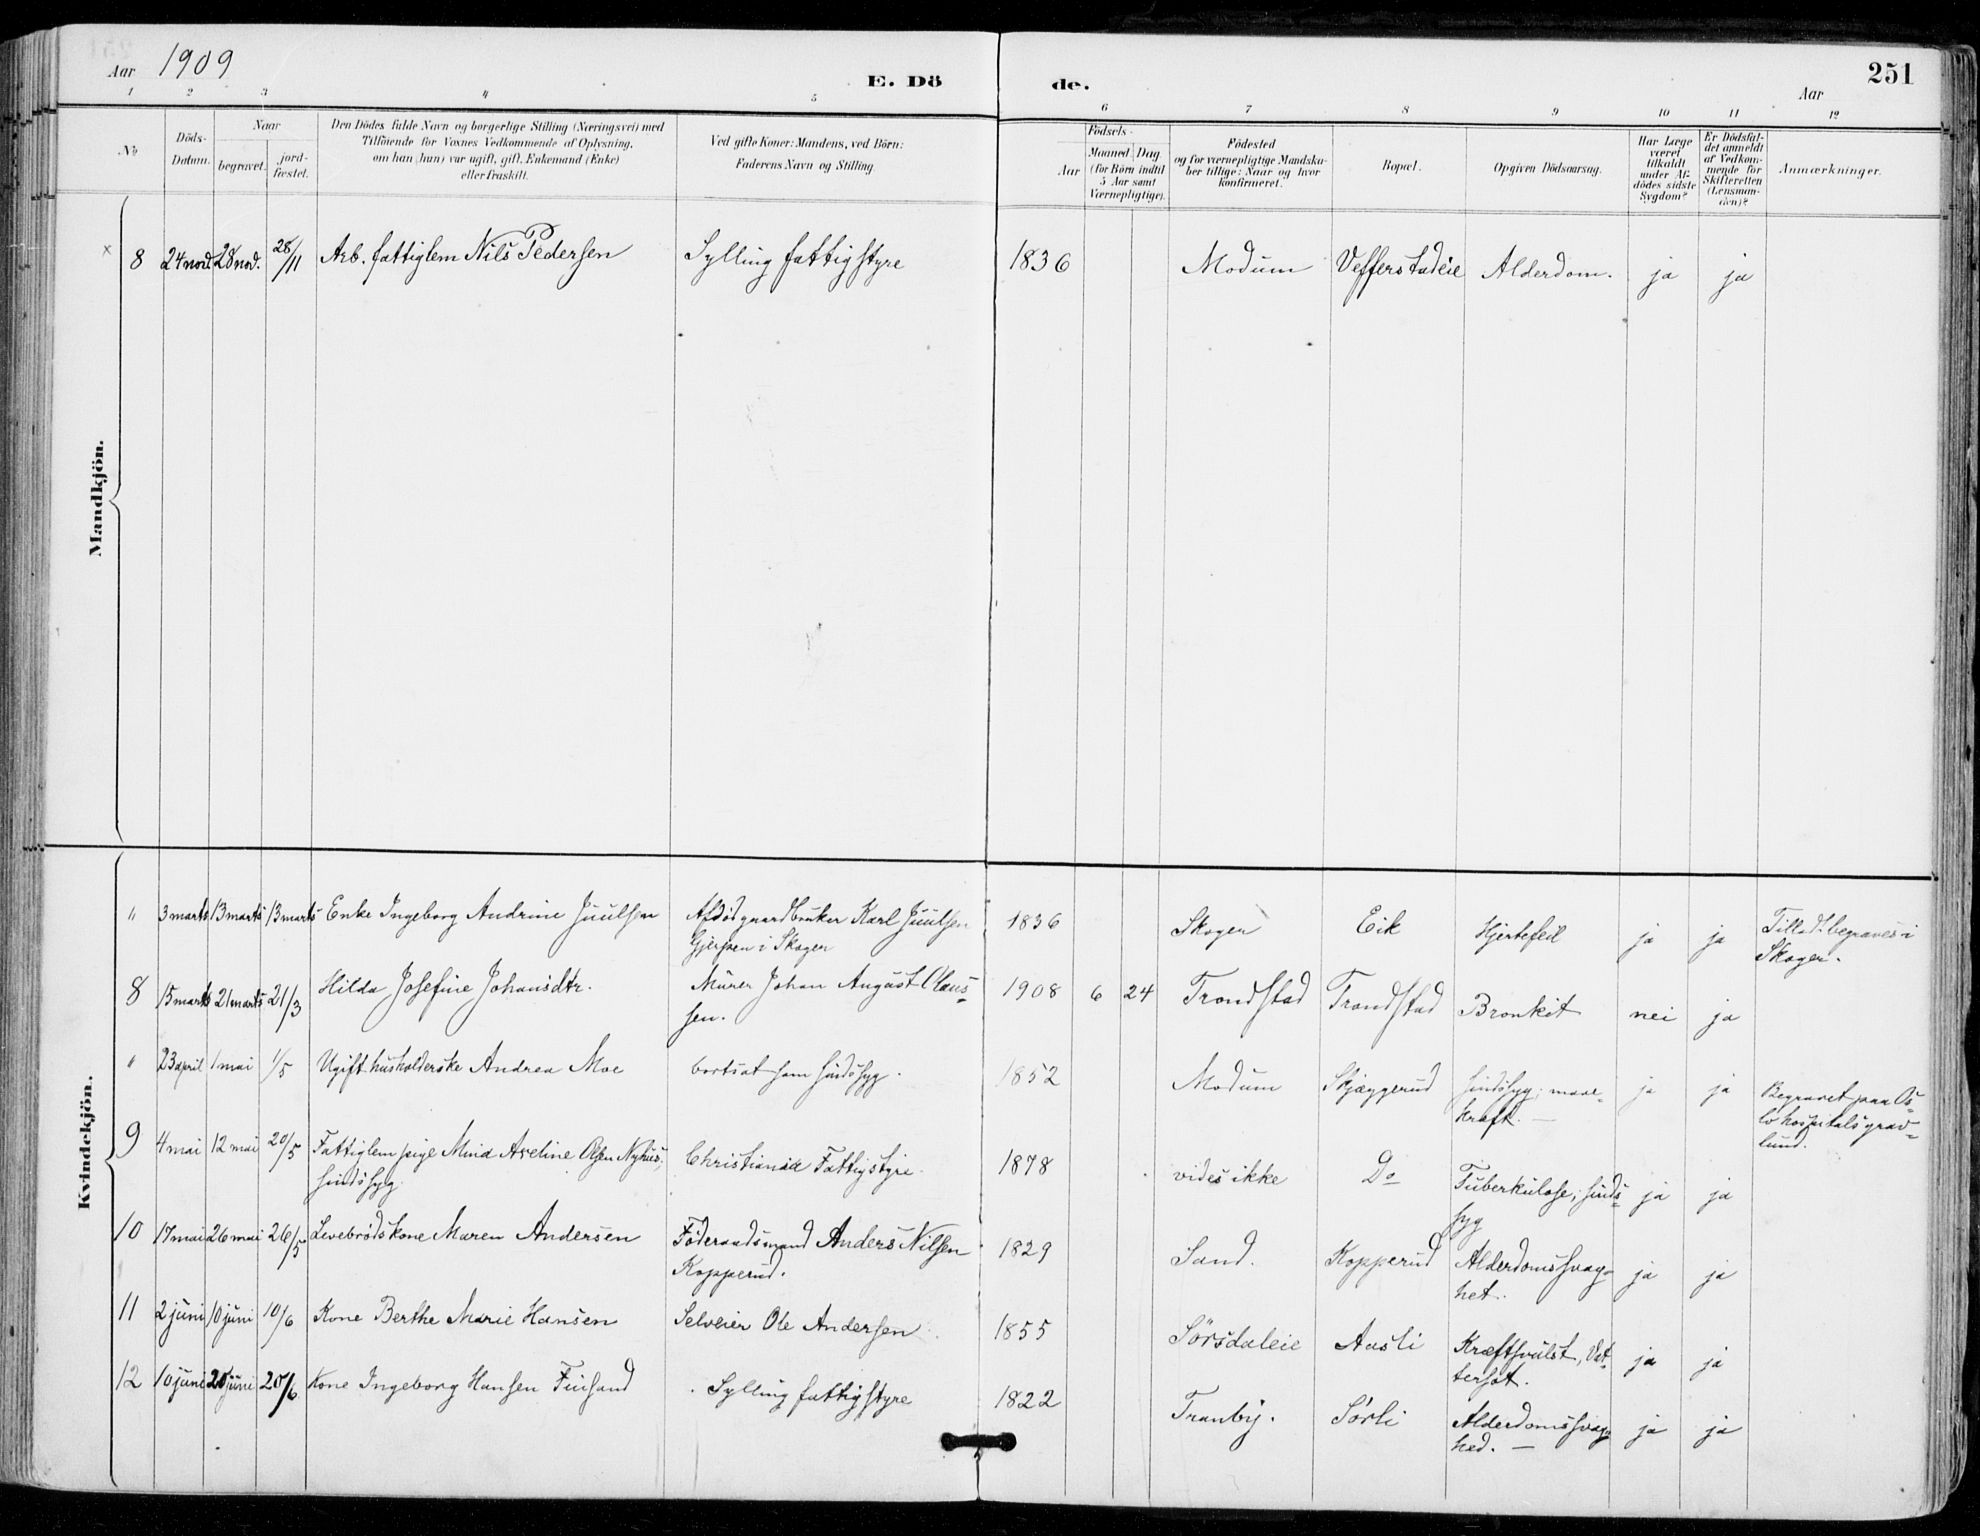 Aar 1909
E. Dö de.
Aar 251
1 2 3 4 5 6 7 8 9 10 11 12
No
Döds-Datum.
Naar
begravet.
jord-fæstet.
Den Dödes fulde Navn og borgerlige Stilling (Næringsvei) med
Tilföiende for Voxnes Vedkommende af Oplysning,
om han (hun) var ugift, gift, Enkemand (Enke)
eller fraskilt.
Ved gifte Koner: Mandens, ved Börn:
Faderens Navn og Stilling.
Födsels-
Aar
Maaned Dag
(for Börn indtil
5 Aar samt
Værnepligtige).
Födested
og for værnepligtige Mandska-
ber tillige: Naar og hvor
konfirmeret.
Bopæl.
Opgiven Dödsaarsag.
Har Læge
været
tilkaldt
under Af-
dödes sidste
Sygdom?
Er Dödsfal-
det anmeldt
af Vedkom-
mende for
Skifteretten
(Lensman-
den)?
Anmærkninger.
Mandkjön.
× 8 24 novb 28 nov. 28/11 Arb. fattiglem Nils Pedersen Sylling fattigstyre 1836 Modum Vefferstadeie Alderdom. ja ja
Kvindekjön.
" 3 marts 13 marts 13 marts Enke Ingeborg Andrine Juulsen Afdød gaardbruker Karl Juulsen 1836 Skoger Eik Hjertefeil ja ja Tilladt begraves i
Gjerpen i Skoger Skoger.
8 15 marts 21 marts 21/3 Hilda Josefine Johansdtr. Murer Johan August Olaus- 1908 6 24 Trondstad Trondstad Bronkit nei ja
sen.
" 23 april 1 mai 1/5 Ugift husholderske Andrea Moe bortsat som sindssyg. 1852 Modum Skjæggerud sindssyg; mave- ja ja Begravet paa Os-
kræft. — lo hospitals grav-
lund.
9 4 mai 12 mai 20/5 Fattiglem pige Mina Aveline Olsen Nyhus, Christiania Fattigstyre 1878 vides ikke Do Tuberkulose; sinds- ja ja
sindssyg. syg
10 17 mai 26 mai 26/5 Levebrødskone Maren Andersen Føderaadsmand Anders Nilsen 1829 Sand. Kopperud Alderdomssvag- ja ja
Kopperud. het.
11 2 juni 10 juni 10/6 Kone Berthe Marie Hansen Selveier Ole Andersen 1855 Sørsdaleie Aasli Kræftsvulst, Vat- ja ja
tersot.
12 10 juni 20 juni 20/6 Kone Ingeborg Hansen Finsand Sylling fattigstyre 1822 Tranby. Sørli Alderdomssvag- ja ja
hed. —